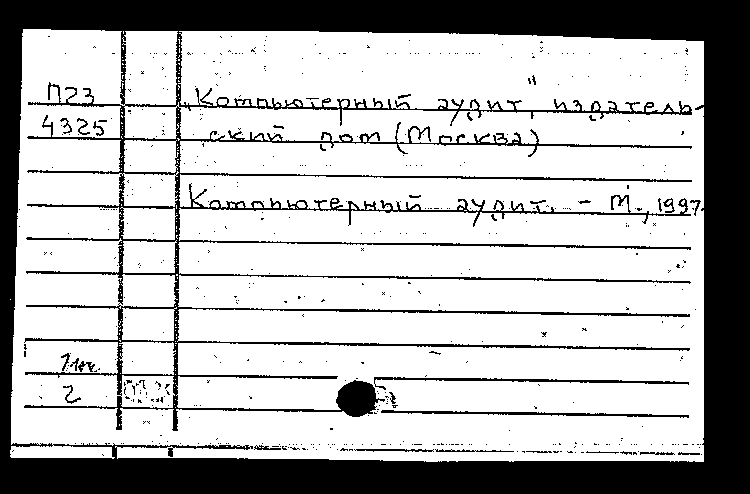 П23
4325
"Компьютерный аудит", издатель-
ский дом (Москва)
Компьютерный аудит. - М., 1997.
2